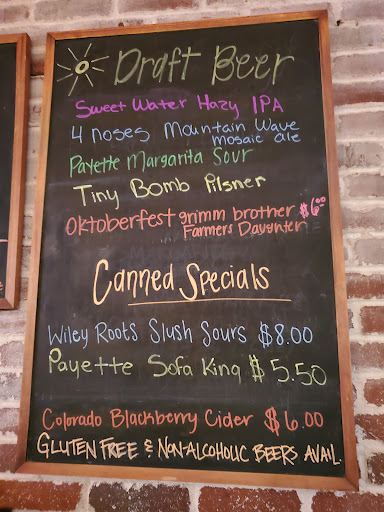 Draft Beer
Sweet Water Hazy IPA
4 noses Mountain Wave
mosaic ale
Payette Margarita Sour
Tiny Bomb Pilsner
Oktoberfest grimm brother $6.00
Farmers Daughter
Canned Specials
Wiley Roots Slush Sours $8.00
Payette Sofa King $5.50
Colorado Blackberry Cider $6.00
GLUTEN FREE & NON-ALCOHOLIC BEERS AVAIL.